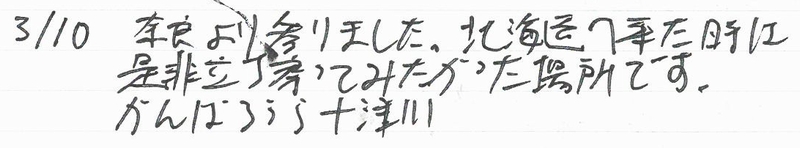 3/10 奈良より参りました。北海道へ来た時は
是非立ち寄ってみたかった場所です。
がんばろうら十津川